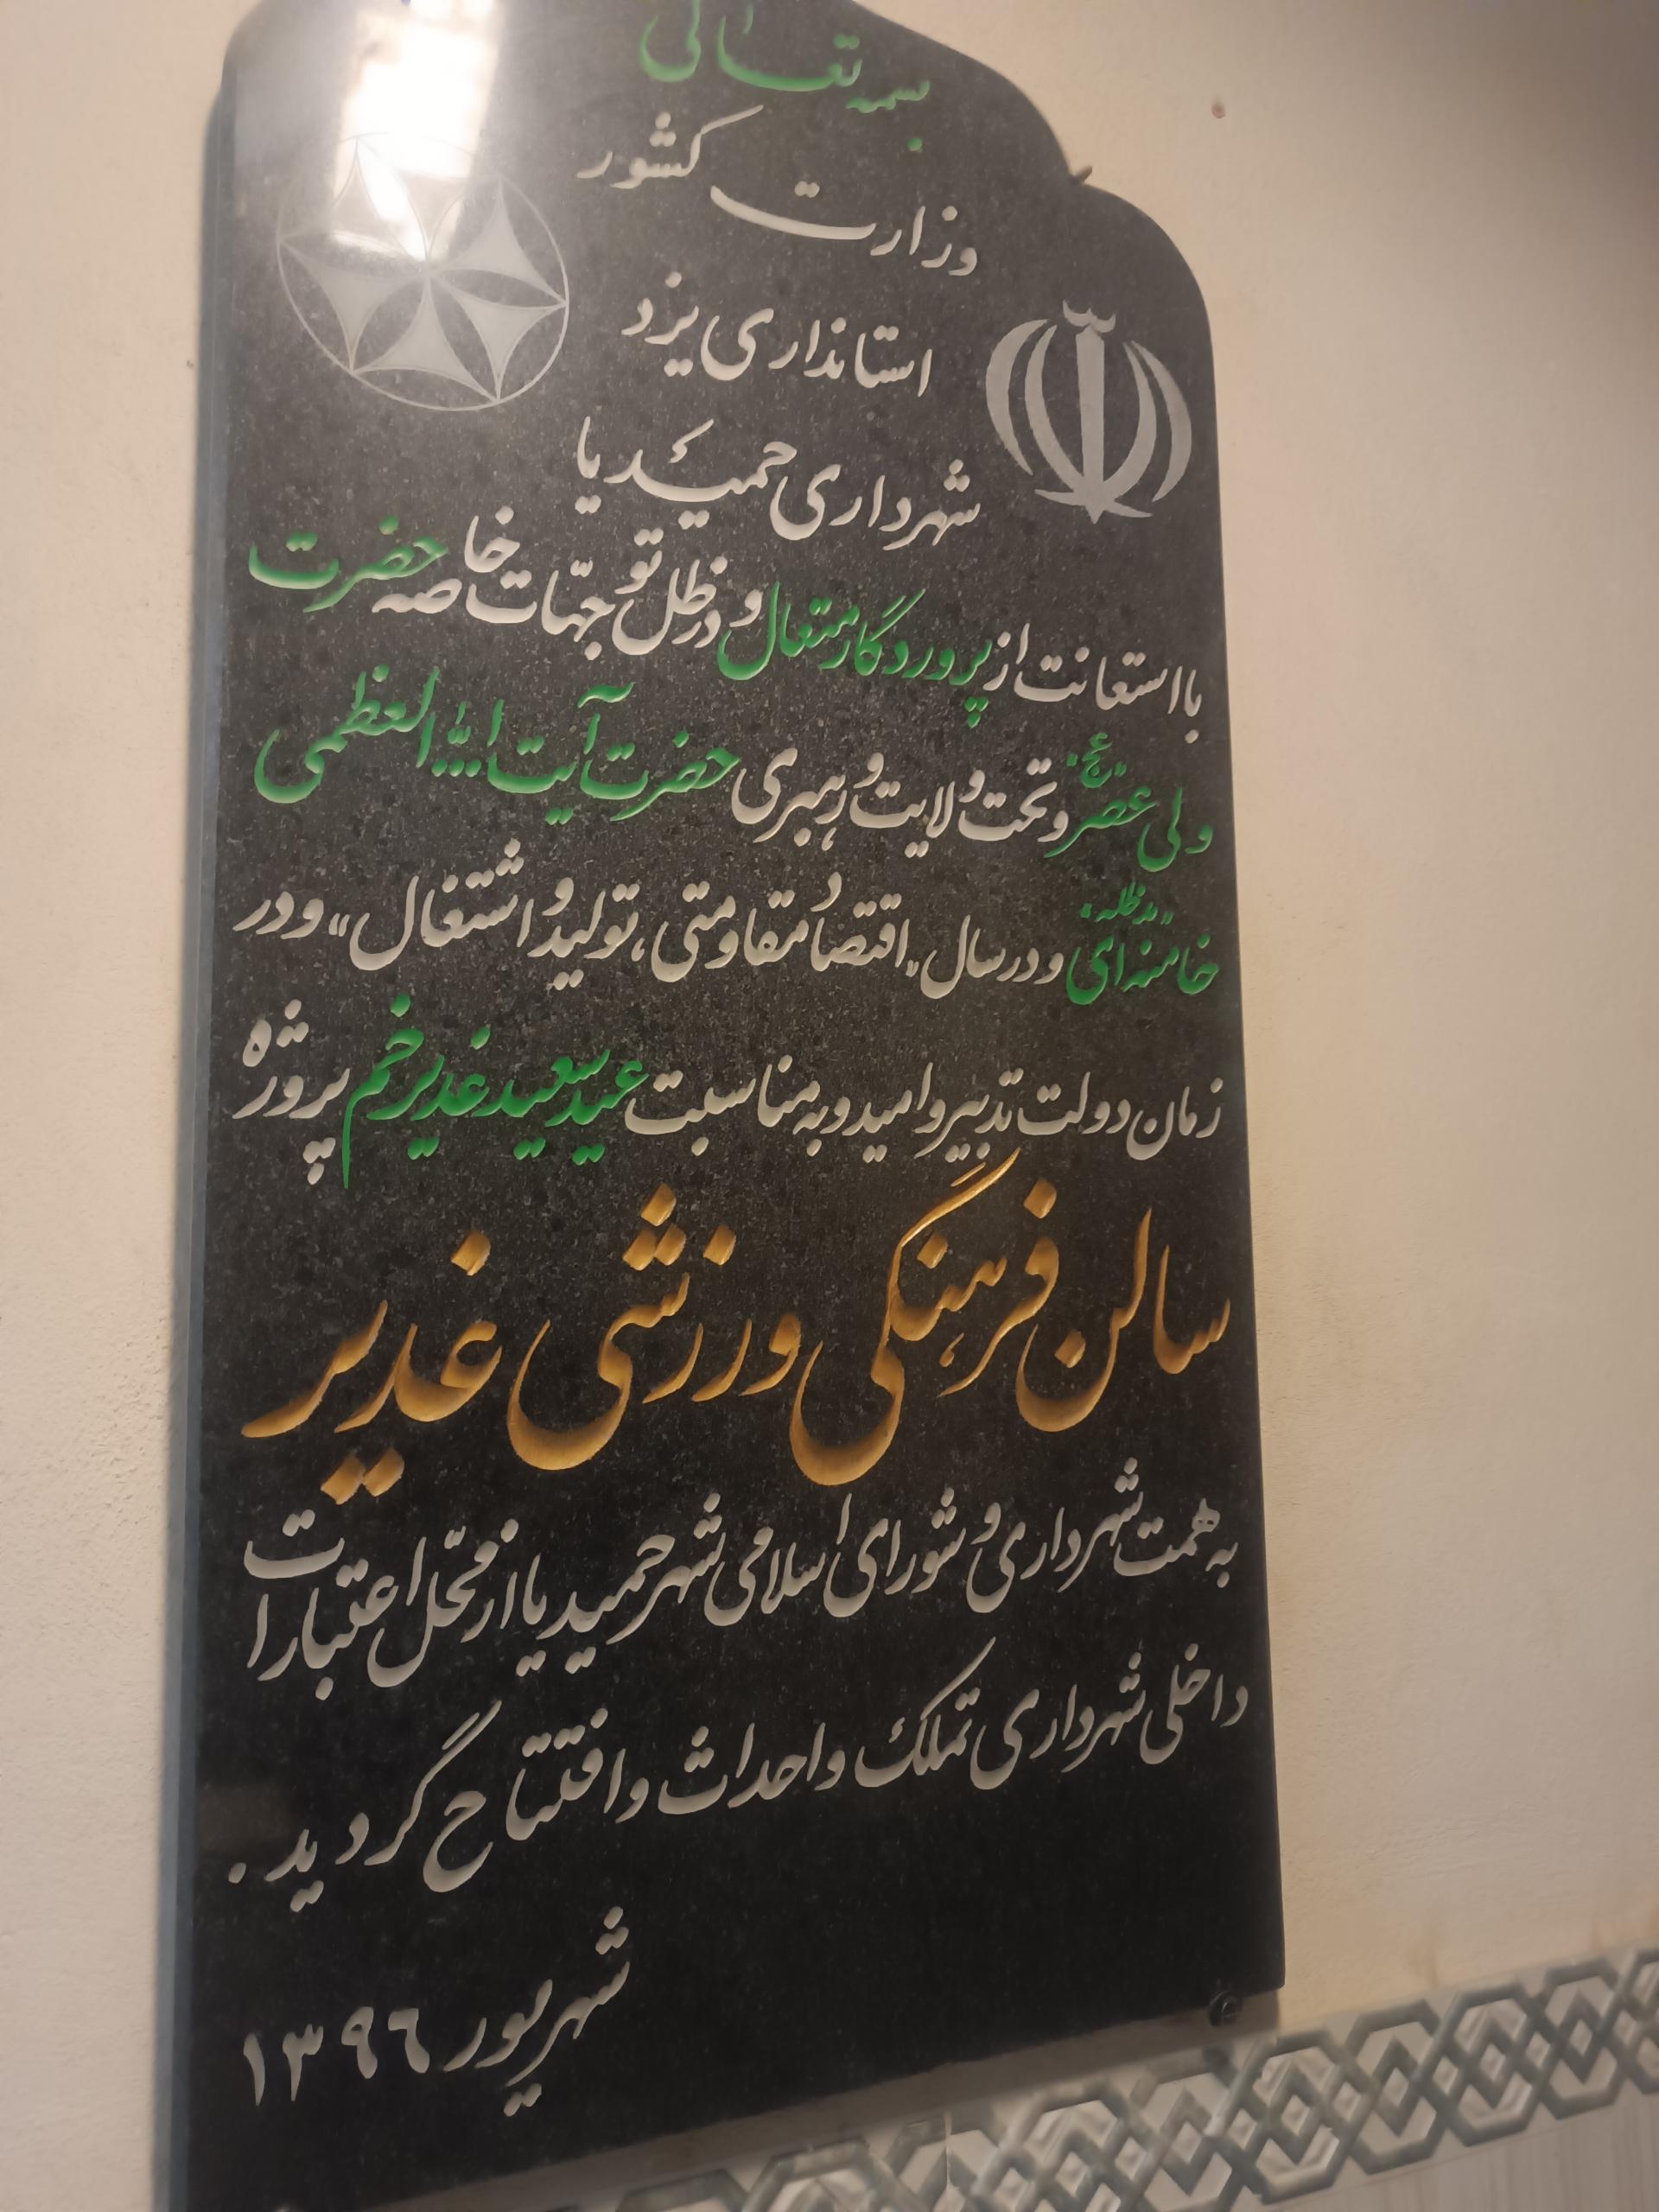 بسمه تعالی
وزارت کشور
استانداری یزد
شهرداری حمیدیا
با استعانت از پروردگار متعال و در ظل توجهات خاصه حضرت
ولی عصر "عج" و تحت ولایت و رهبری حضرت آیت الله العظمی
خامنه ای "مدظله" و در سال "اقتصاد مقاومتی، تولید و اشتغال" و در
زمان دولت تدبیر و امید و به مناسبت عید سعید غدیر خم پروژه
سالن فرهنگی ورزشی غدیر
به همت شهرداری و شورای اسلامی شهر حمیدیا از محل اعتبارات
داخلی شهرداری تملک و احداث و افتتاح گردید.
شهریور ۱۳۹۶